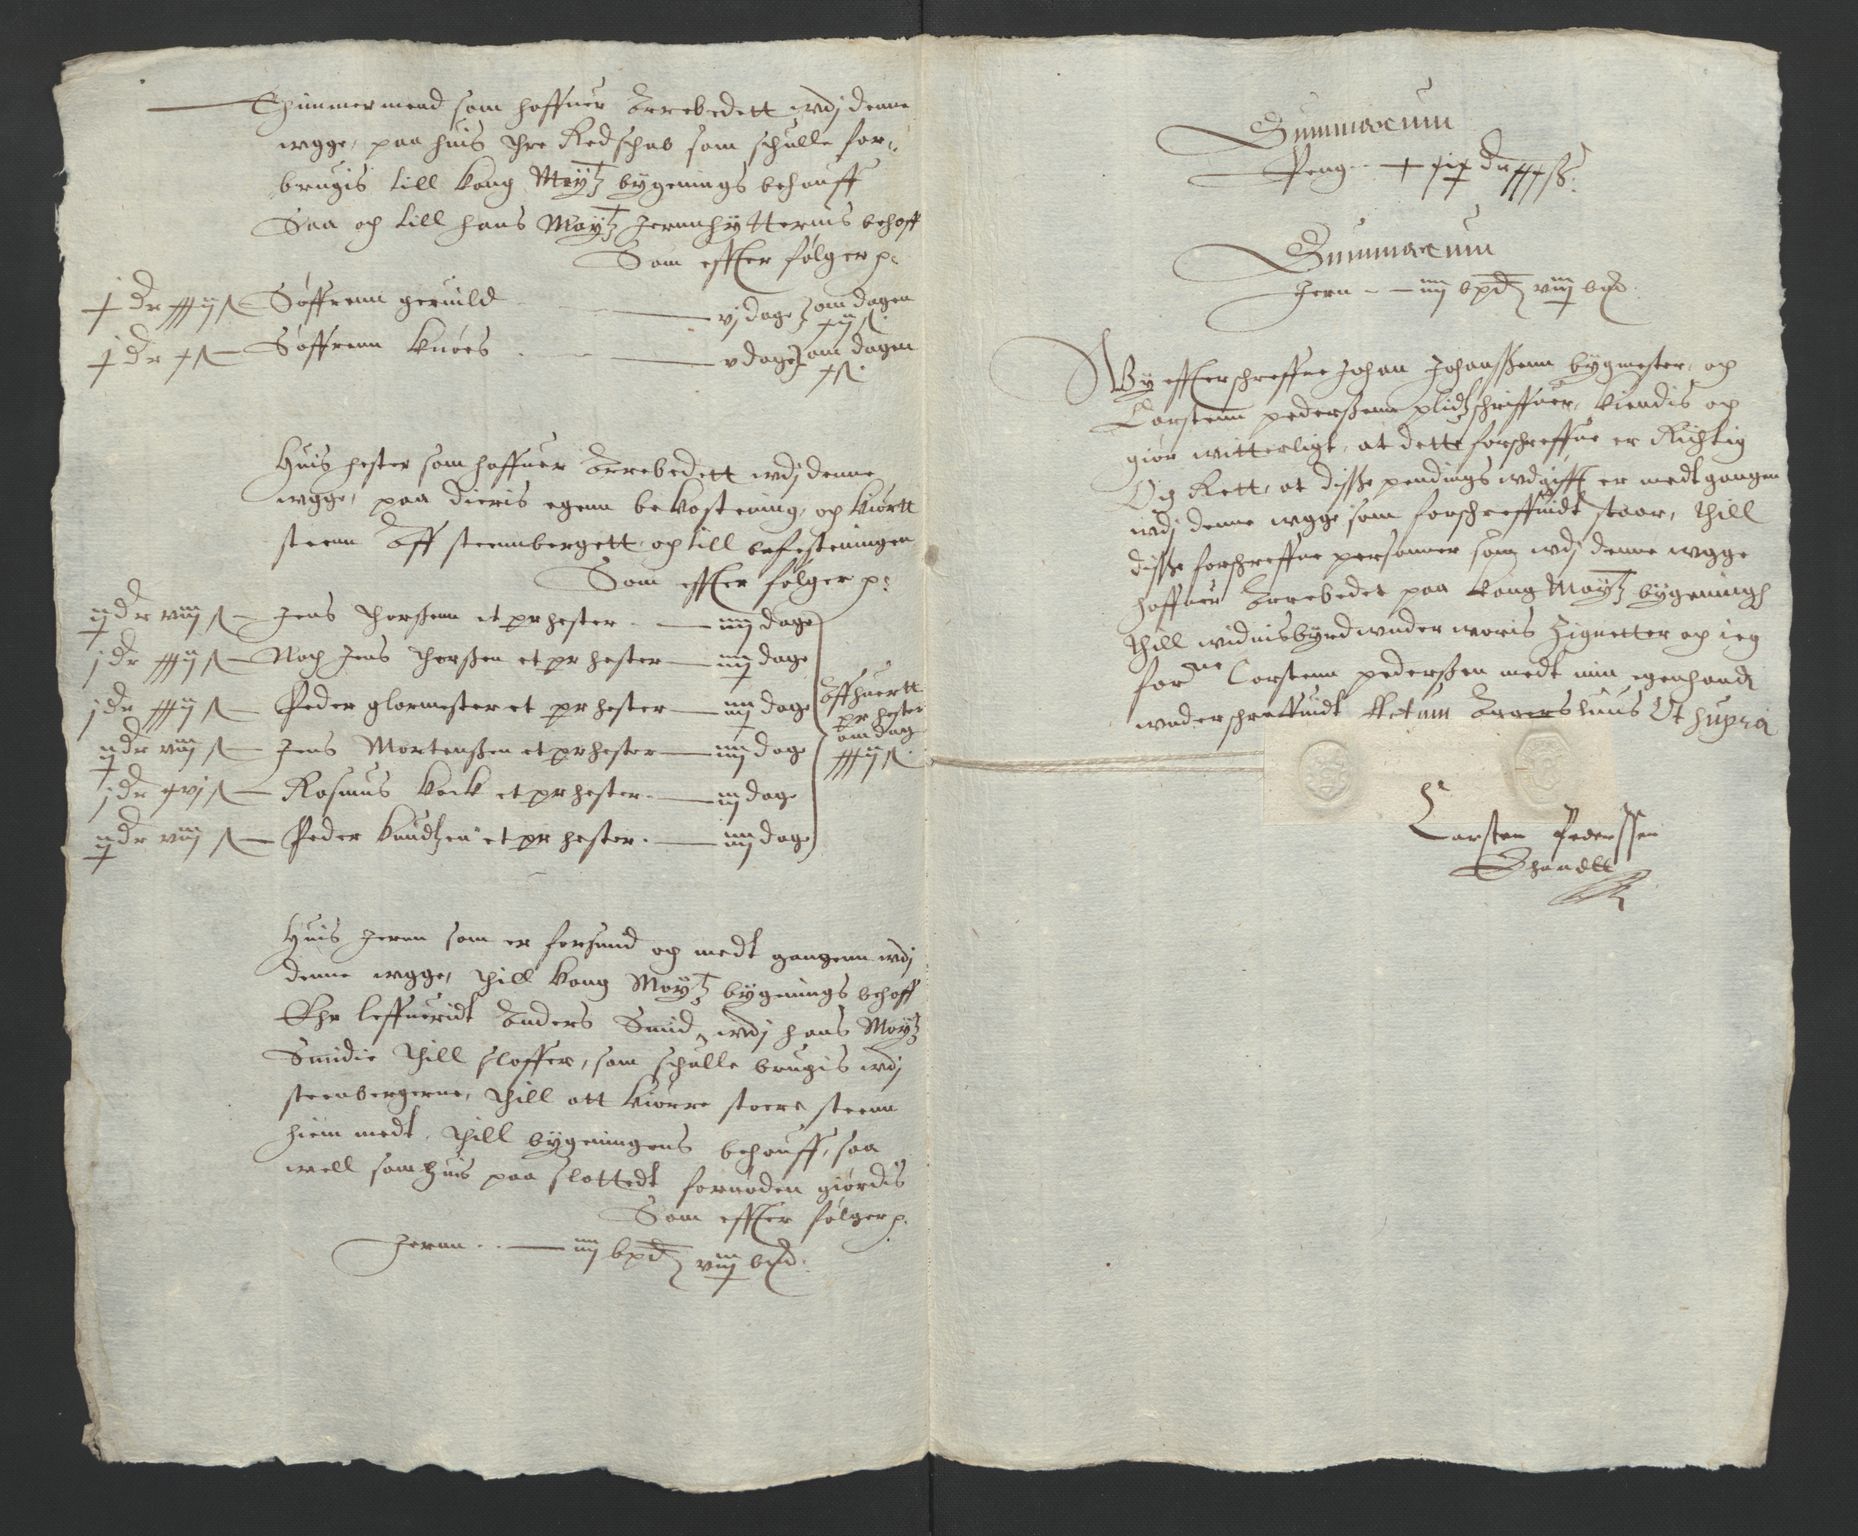 Thimmermend som haffuer Arrebedett wdj denne
wgge, paa huis thre Redschab som schulle for-
brugis till Kong Maytz bygenings behouff
Saa och till hans Maytz Jernnhytterns behoff
Som effter følger p:
dr xxij ß Søffrenn geruild vj dage, om dagen
xij ß.
dr x ß Søffrenn Knoes v dage, om dagen
x ß.
Huis hester som haffuer Arrebedett wdj denne
wgge, paa dieris egenn bekostening, och kiørtt
steenn Aff steennbergett, och till befesteningen
Som effter følger p:
ij dr viij ß Jens Thorßenn et pr hester iiij dage
j dr xxij ß Noch Jens Thorßen et pr hester iij dage
j dr xxij ß Peder glarmester et pr hester iij dage
ij dr viij ß Jens Mortenßen et pr hester iiij dage
j dr xvj ß Rasmus Kock et pr hester iij dage
ij dr viij ß Peder Knudtzen et pr hester iiij dage
Aff huertt
pr hester
om dag
xxij ß.
Huis Jernn som er forsmid og medt gangenn wdj
denne wgge, till Kong Maytz bygnings behoff
Ehr leffueridt Anders Smid, wdj hans Maytz
Smidie till sloffer, som schulle brugis wdj
steenbergerne, till att kiørre stoere steenn
hiem medt, till bygeningens behouff, saa
well som huis paa slottedt fornøden giordis
Som effter følger p:
Jernn iiij bpd viij bmd.
Summarum
Peng dr ß:
Summarum
Jern iiij bpd viij bmd.
Wy effterschreffne Johan Johanßenn bygmester, och
Carstenn pederßenn plidtzschriffuer, kiendis och
giør witterligt, at dette forschreffne er Richtig
Och Rett, at disse pendings wdgifft er medt gangen
wdj denne wgge som forschreffuidt staar, till
disse forschreffne personner som wdj denne wgge
haffuer Arrebedet paa Kong Maytz bygenings
Till widnisbyrd wnder woris Zignetter och ieg
forne Carstenn pederßen medt min egenhand
wnderschreffuidt Actum Aggershuus Ut supra
Carsten Pederssen
Ehandtt